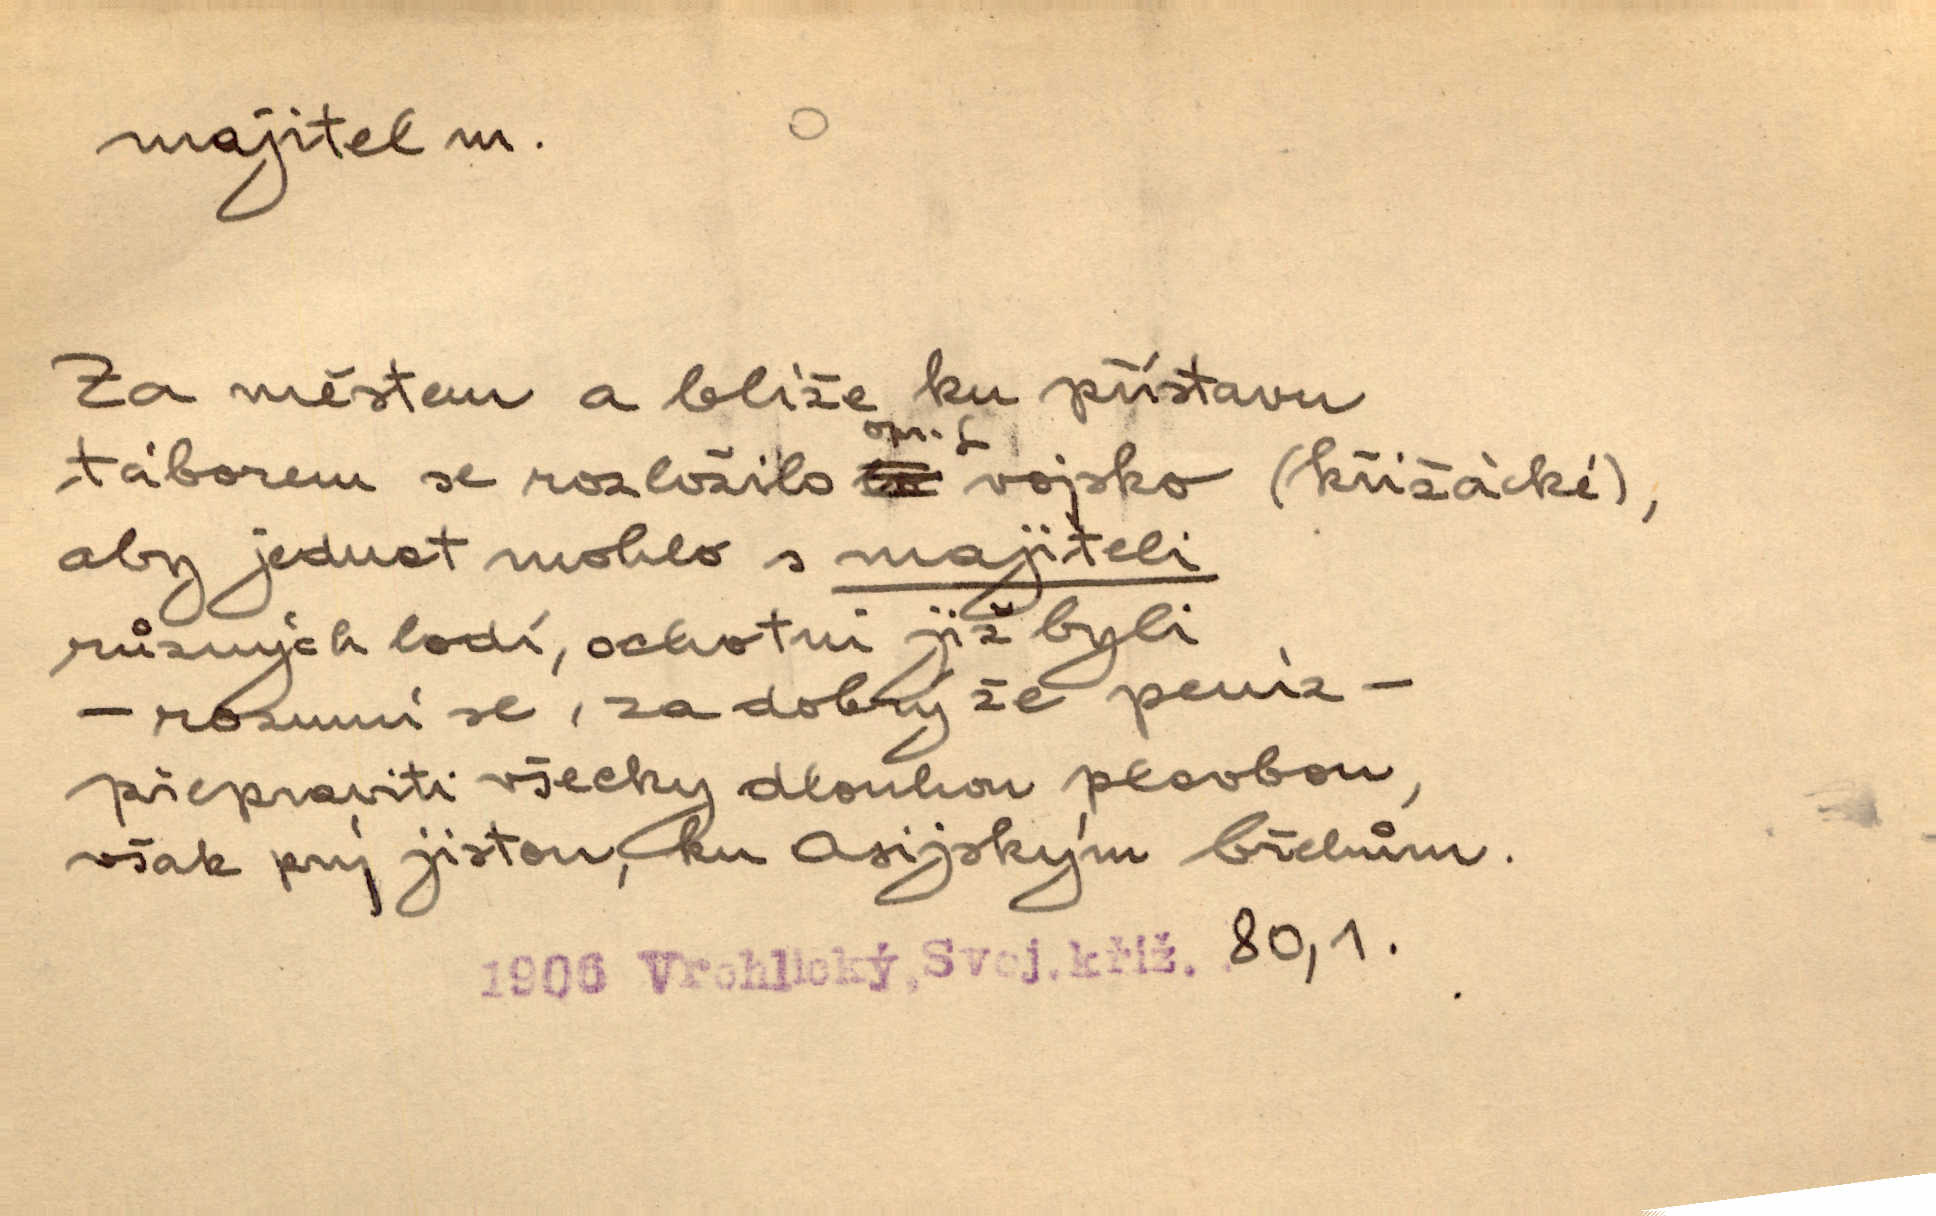 majitel m.
Za městem a blíže ku přístavu
opr. L
táborem se rozložilo vojsko (křižácké),
aby jednat mohlo s majiteli
různých lodí, ochotni již byli
– rozumí se, za dobrý že peníz –
přepraviti všecky dlouhou plavbou,
však prý jistou, ku asijským břehům.
1906 Vrchlický, Svoj. kříž. 80,1.